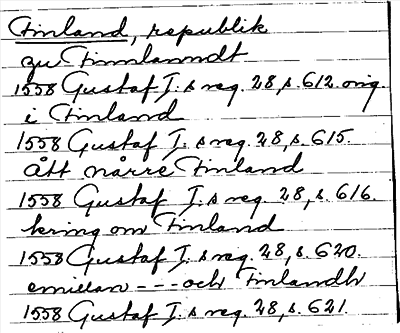 Finland, republik
zu Finnlanndt
1558 Gustaf I.s reg. 28, s. 612. orig.
i Finland
1558 Gustaf I.s reg. 28, s. 615.
Ått nårre Finland
1558 Gustaf I.s reg. 28, s. 616.
kring om Finland
1558 Gustaf I.s reg. 28, s. 620.
emillan --- och Finlandh
1558 Gustaf I.s reg. 28, s. 621.